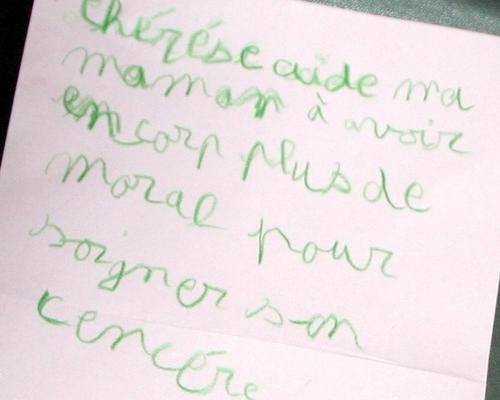 thérése aide ma
maman à avoir
encorp plus de
moral pour
soigner son
cencére